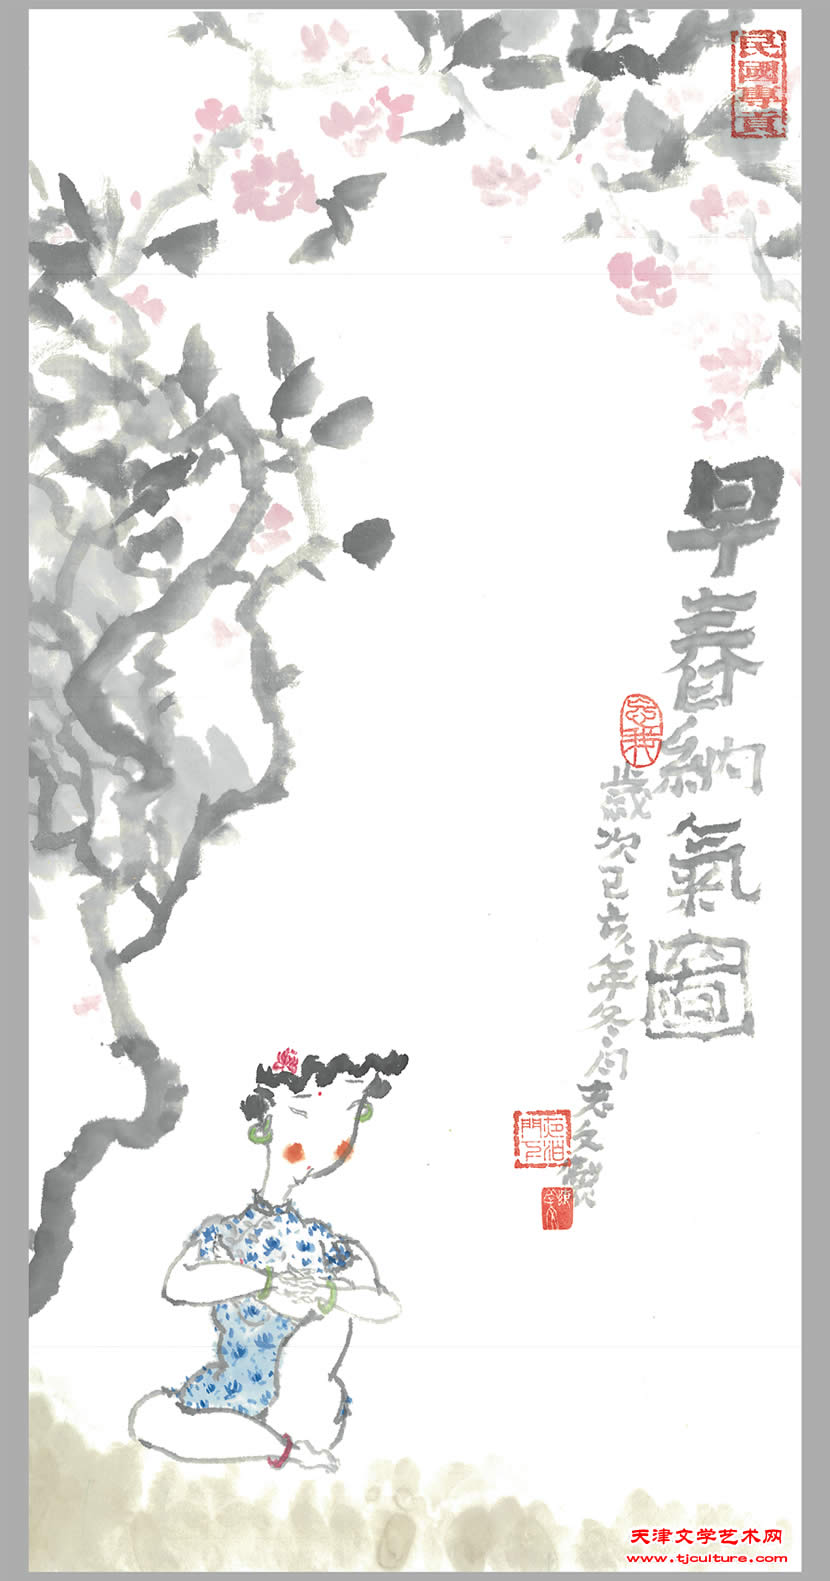 民國專
早春納氣圖
歲次己亥年冬月老文製
天津文学艺术网
www.tjculture.com